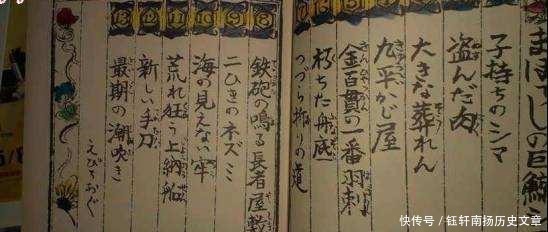 まぼろしの巨鯨
子持ちのシマ
盗んだ肉
大きな葬れん
九平かじ屋
金百貫の一番羽刺
朽ちた舟底
つづら折りの道
8 鉄砲の鳴る長者屋敷
9 二ひきのネズミ
10 海の見えない牢
11 荒れ狂う上納船
12 新しい手刀
13 最期の潮吹き
えぴろおぐ
快传号 / 钰轩南扬历史文章